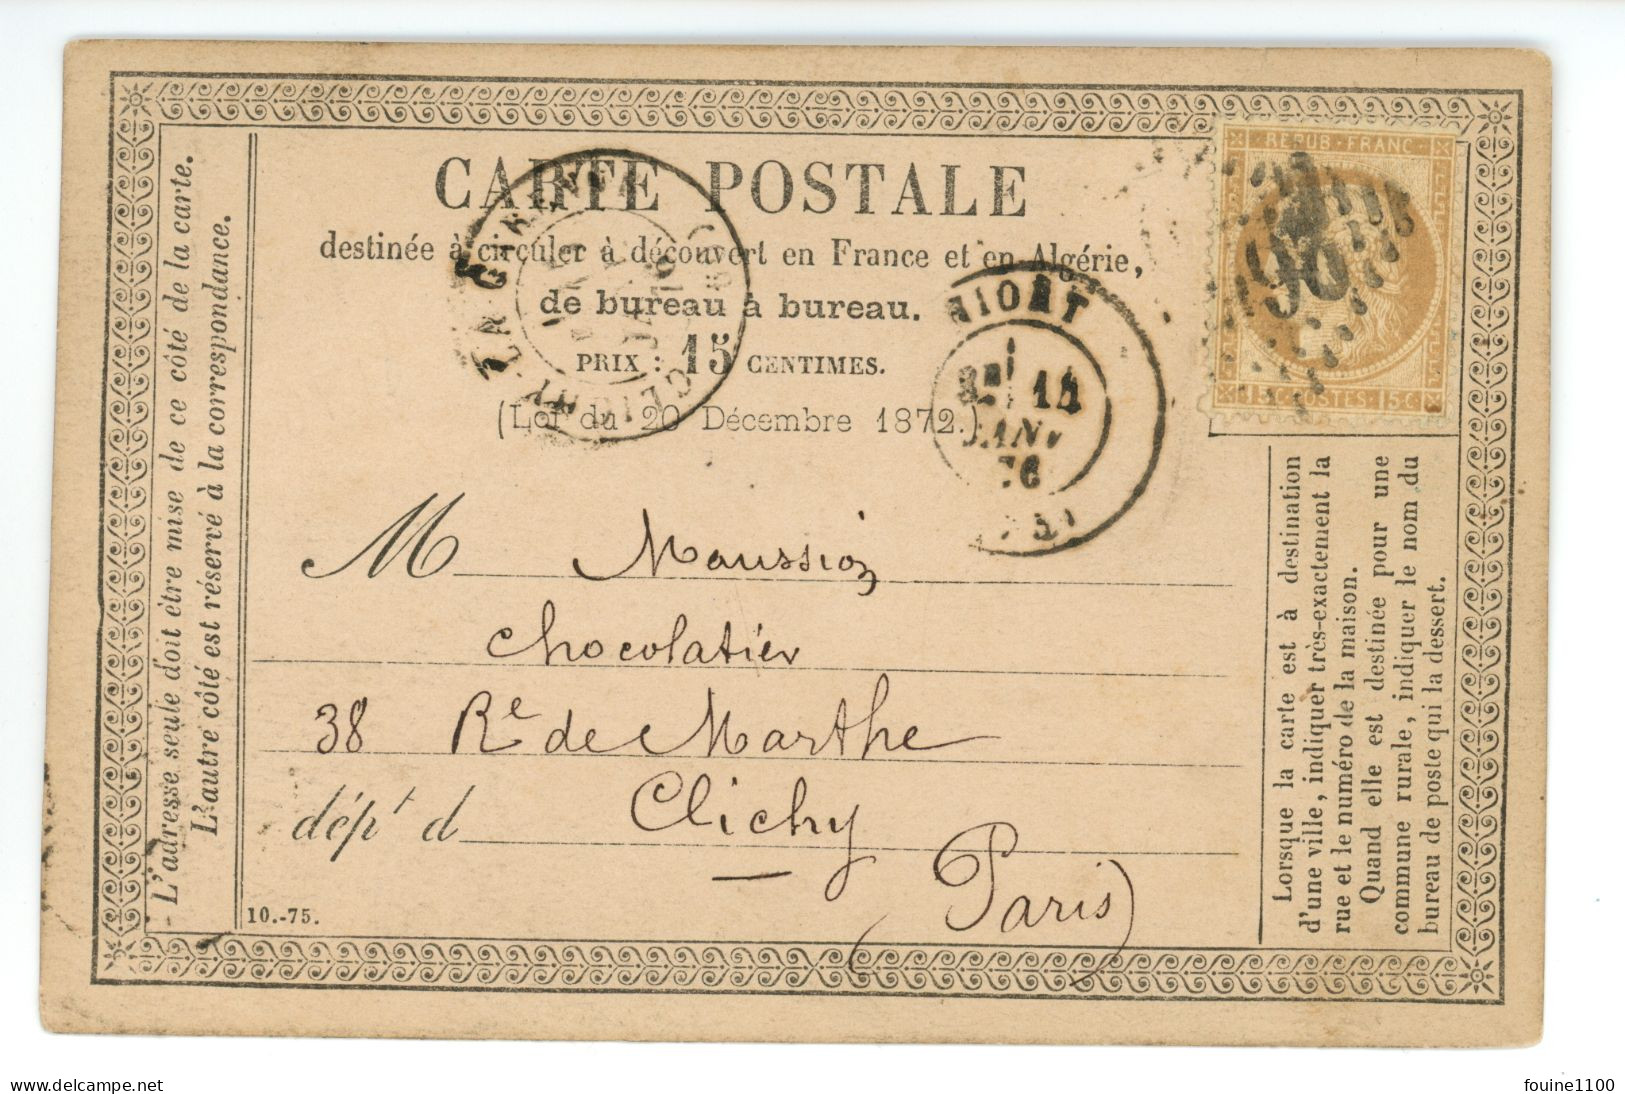 CARTE POSTALE
destinée à circuler à découvert en France et en Algérie,
de bureau à bureau.
PRIX : 15 CENTIMES.
(Loi du 20 Décembre 1872.)
REPUB • FRANC
15 C • POSTES • 15 C
NIORT
14
JANV
76
L'adresse seule doit être mise de ce côté de la carte.
L'autre côté est réservé à la correspondance.
M Maussion
chocolatier
38 Re de Marthe
dépt d Clichy
(Paris)
10.-75.
Lorsque la carte est à destination
d'une ville, indiquer très-exactement la
rue et le numéro de la maison.
Quand elle est destinée pour une
commune rurale, indiquer le nom du
bureau de poste qui la dessert.
www.delcampe.net
fouine1100